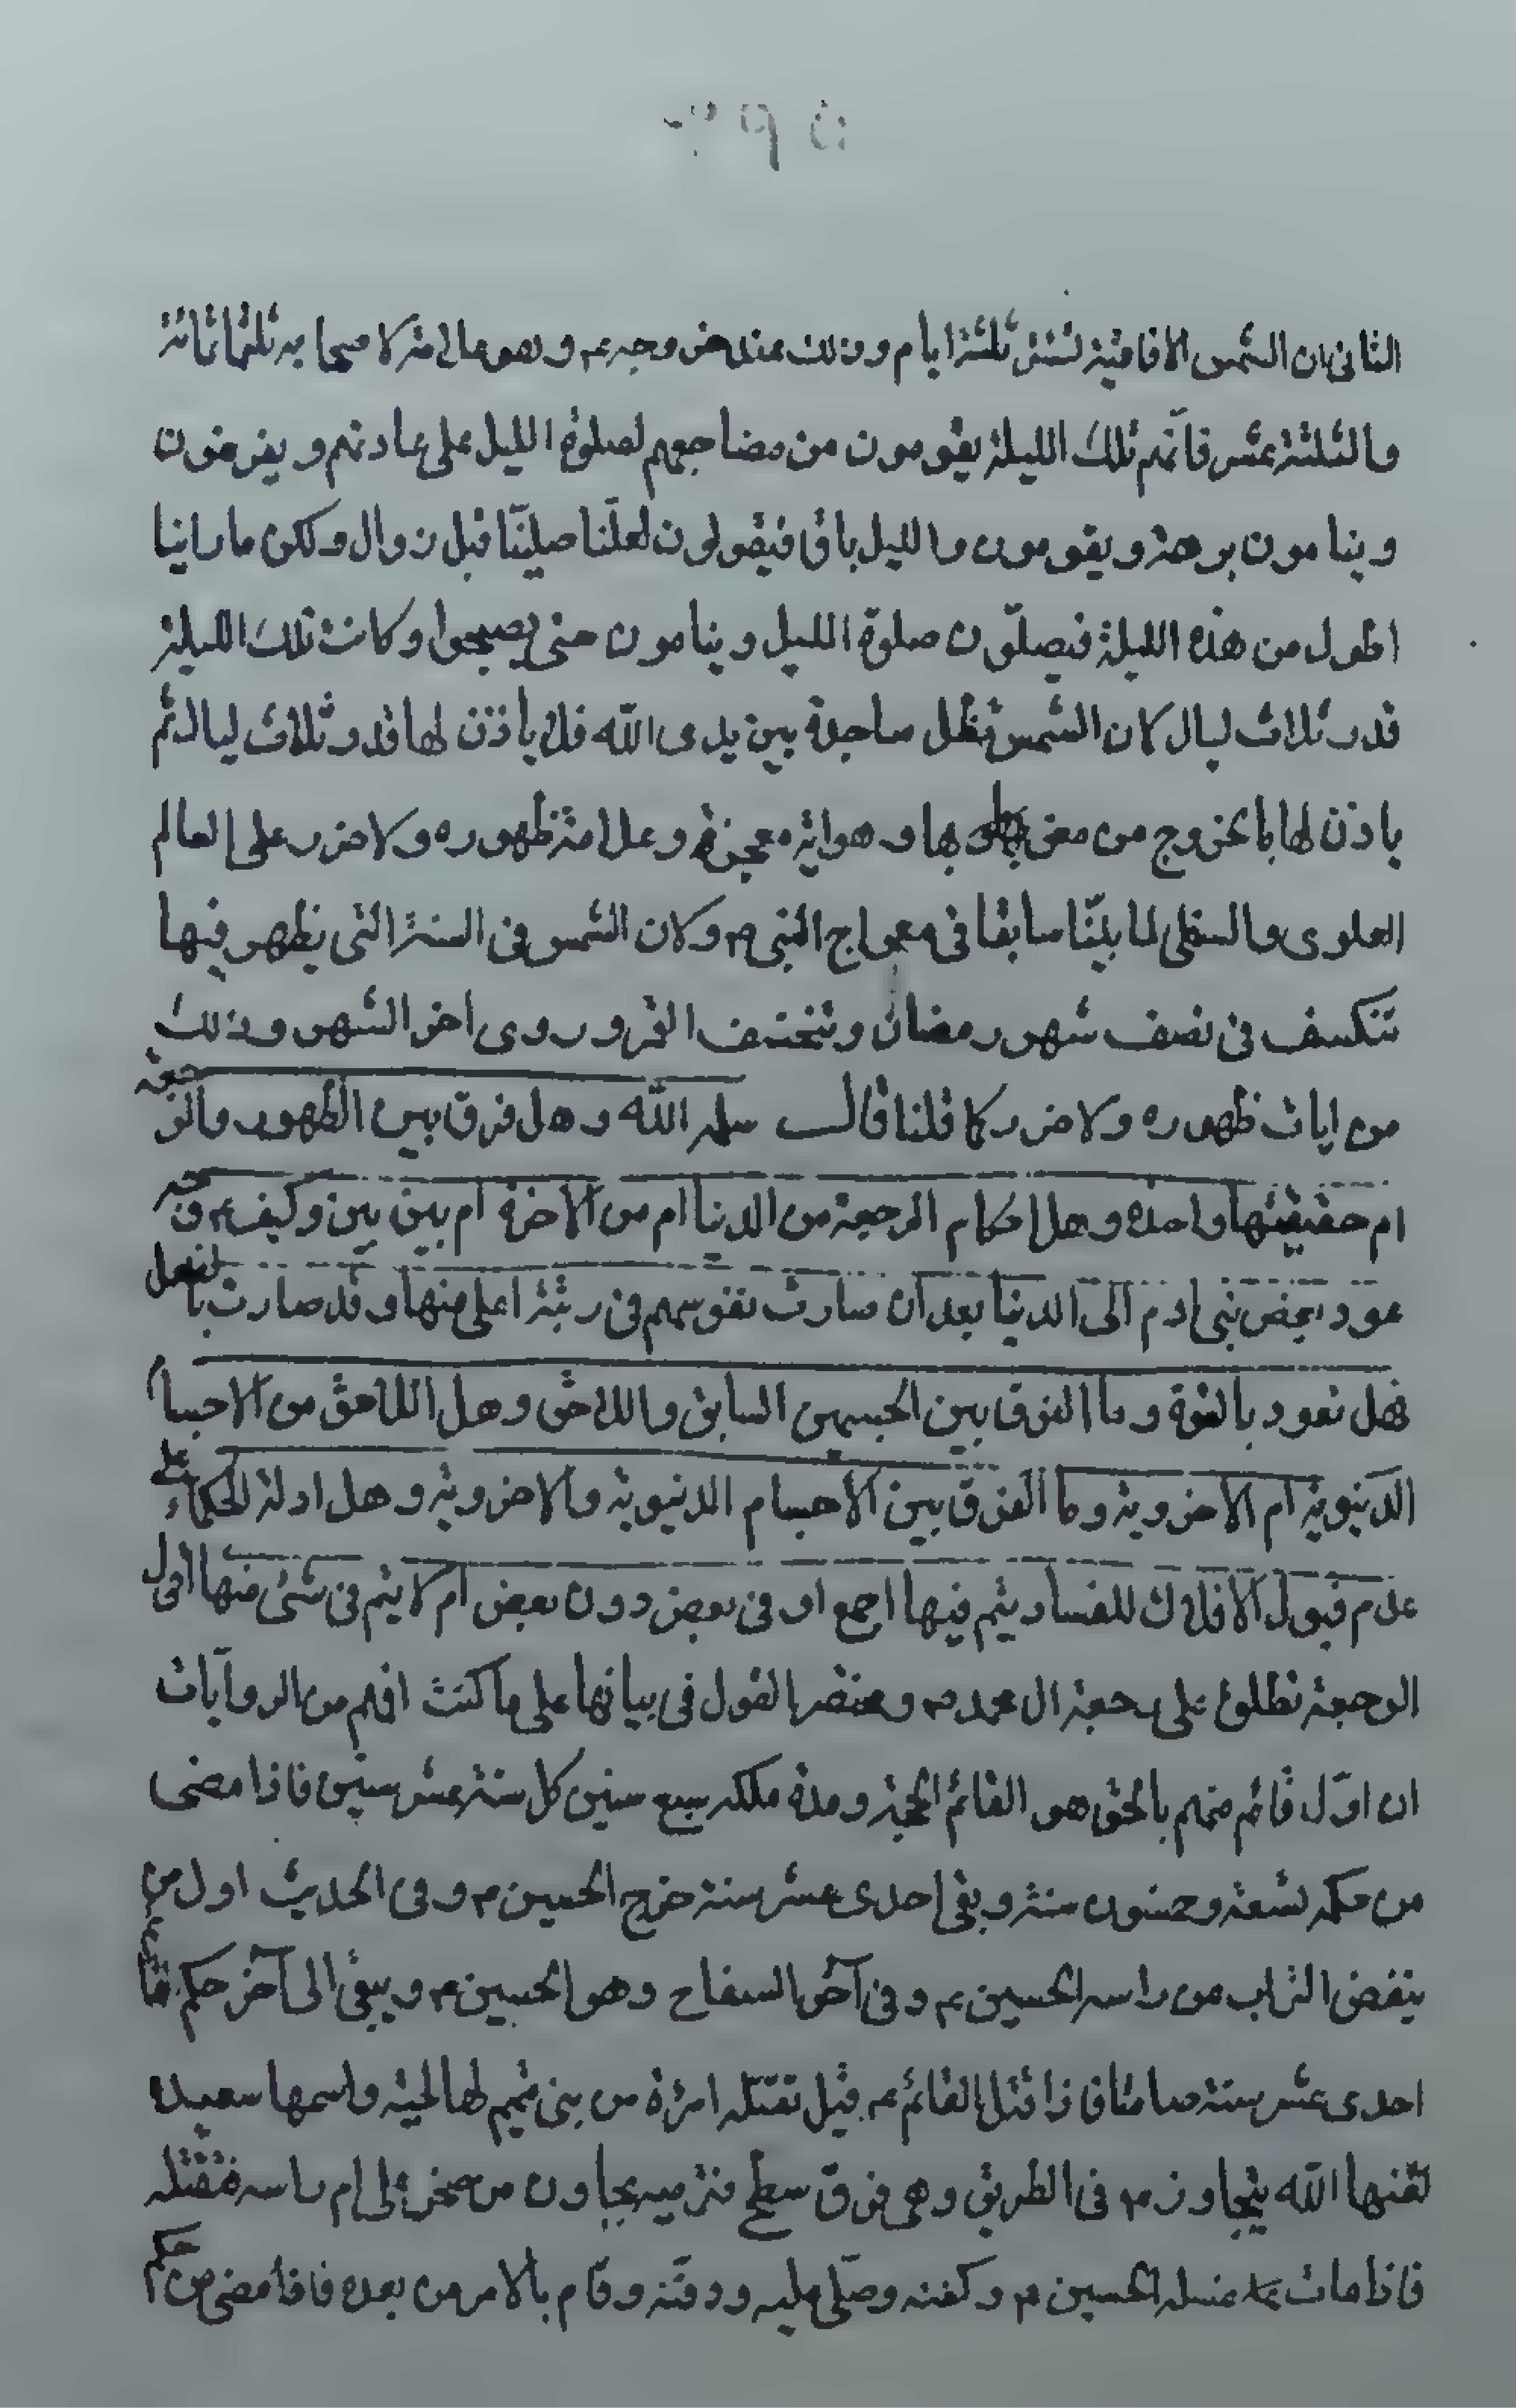 الثانى ان الشمس الافاقية تستتر ثلثة ايام وذلك عند خروجه ع وهو علامة لاصحابه ثلثمائة
والثلثة عشر فانهم تلك الليلة يقومون من مضاجعهم لصلوة الليل على عادتهم و يفرغون
وينامون برهة ويقومون والليل باق فيقولون لعلّنا صلينا قبل زوال ولكن ما راينا
اطول من هذه الليلة فيصلّون صلوة الليل وينامون حتى يصبحوا وكانت تلك الليلة
قدر ثلاث ليال كان الشمس تظل ساجدة بين يدى الله فلا ياذن لها قدر ثلاث ليال ثم
ياذن لها بالخروج من مغربها وهو اية معجزة وعلامة ظهوره ولا ضرر على العالم
العلوى والسفلى لما بيّنا سابقا فى معراج النبى ص وكان الشمس فى السنة التى يظهر فيها
تنكسف فى نصف شهر رمضان وتنخسف القمر وروى اخر الشهر وذلك
من ايات ظهوره ولا ضرر كما قلنا قال سلمه الله وهل فرق بين الظهور والرجعة
ام حقيقتها واحدة وهل احكام الرجعة من الدنيا ام من الاخرة ام بين بين وكيف وجه
عود بعض بنى ادم الى الدنيا بعد ان صارت نفوسهم فى رتبة اعلى منها وقد صارت بالفعل
فهل تعود بالقوة وما الفرق بين الجسمين السابق واللاحق وهل اللاحق من الاجسام
الدنيوية ام الاخروية وما الفرق بين الاجسام الدنيوية والاخروية وهل ادلة الحكماء على
عدم قبول الافلاك للفساد يتم فيها اجمع او فى بعض دون بعض ام لا يتم فى شئ منها اقول
الرجعة تطلق على رجعة ال محمد ص ومختصر القول فى بيانها على ما كنت افهم من الروايات
ان اوّل قائم منهم بالحق هو القائم الحجة ومدة ملكه سبع سنين كل سنة عشر سنين فاذا مضى
من حكمه تسعة وخمسون سنة وبقى احدى عشر سنة خرج الحسين ع وفى الحديث اول من
ينفض التراب من راسه الحسين ع وفى آخر السفاح وهو الحسين ع ويبقى الى آخر حكم
احدى عشر سنة صامتا فاذا قتل القائم ع قيل تقتله امرءة من بنى تميم لها لحية واسمها سعيدة
لعنها الله يتجاوز ع فى الطريق وهى فوق سطح فترميه بجاون من صخر على ام راسه فتقتله
فاذا مات ع غسله الحسين ع وكفنه وصلّى عليه ودفنه وقام بالامر من بعده فاذا مضى من حكم